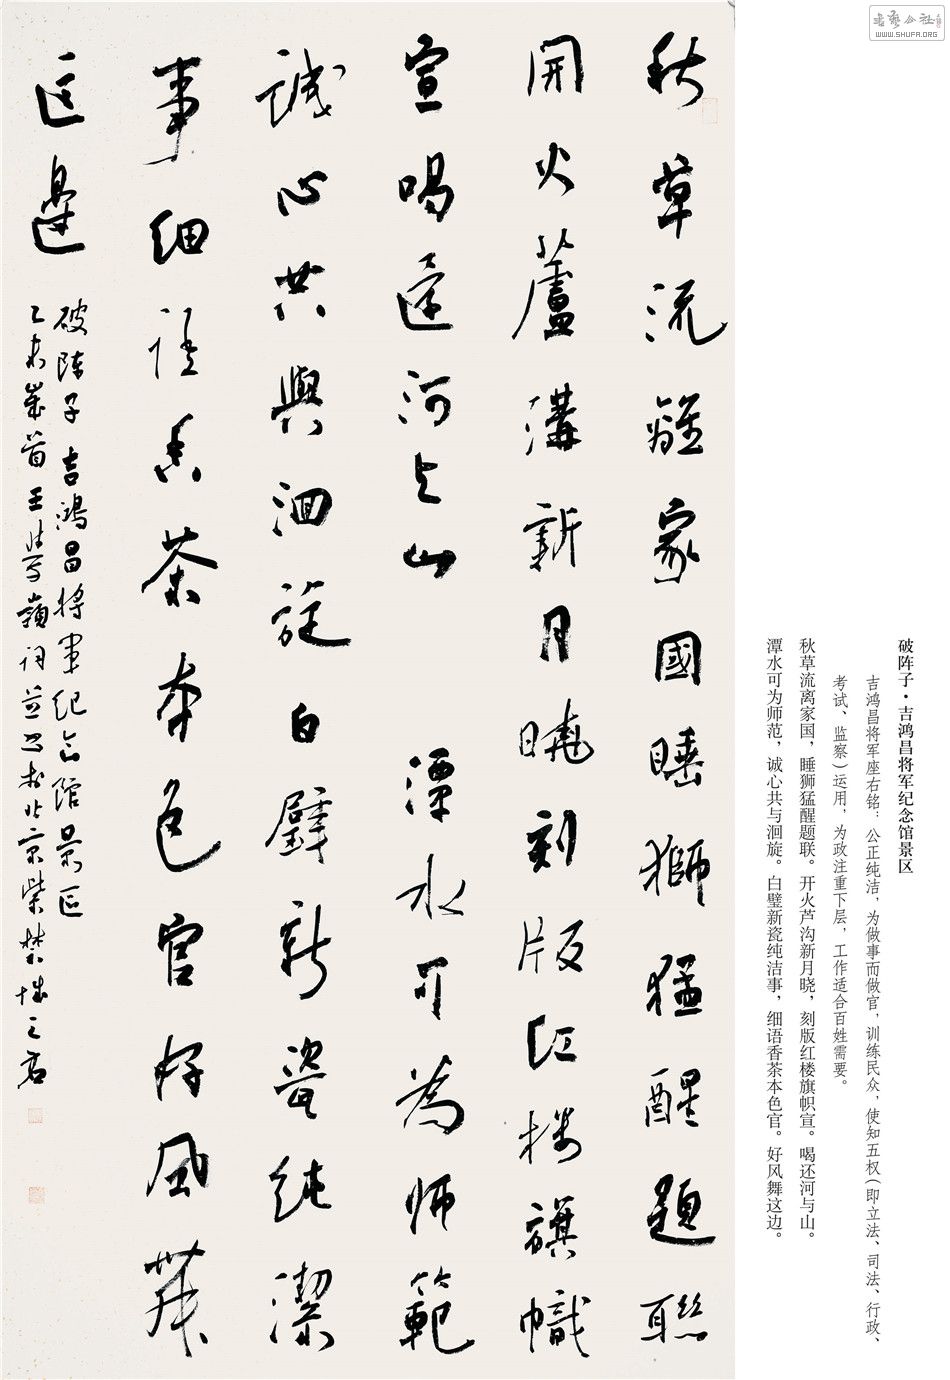 書藝公社
WWW.SHUFA.ORG
破阵子·吉鸿昌将军纪念馆景区
吉鸿昌将军座右铭：公正纯洁，为做事而做官，训练民众，使知五权（即立法、司法、行政、
考试、监察）运用，为政注重下层，工作适合百姓需要。
秋草流离家国，睡狮猛醒题联。开火芦沟新月晓，刻版红楼旗帜宣。喝还河与山。
潭水可为师范，诚心共与洄旋。白璧新瓷纯洁事，细语香茶本色官。好风舞这边。
秋草流離家國睡獅猛醒題聯
開火蘆溝新月曉刻版紅樓旗幟
宣喝還河与山 潭水可為師範
誠心共與洄旋白璧新瓷純潔
事細語香茶本色官好風舞
這邊
破陣子 吉鴻昌將軍紀念館景區
乙未歲首王學嶺詞並書於北京紫禁城之